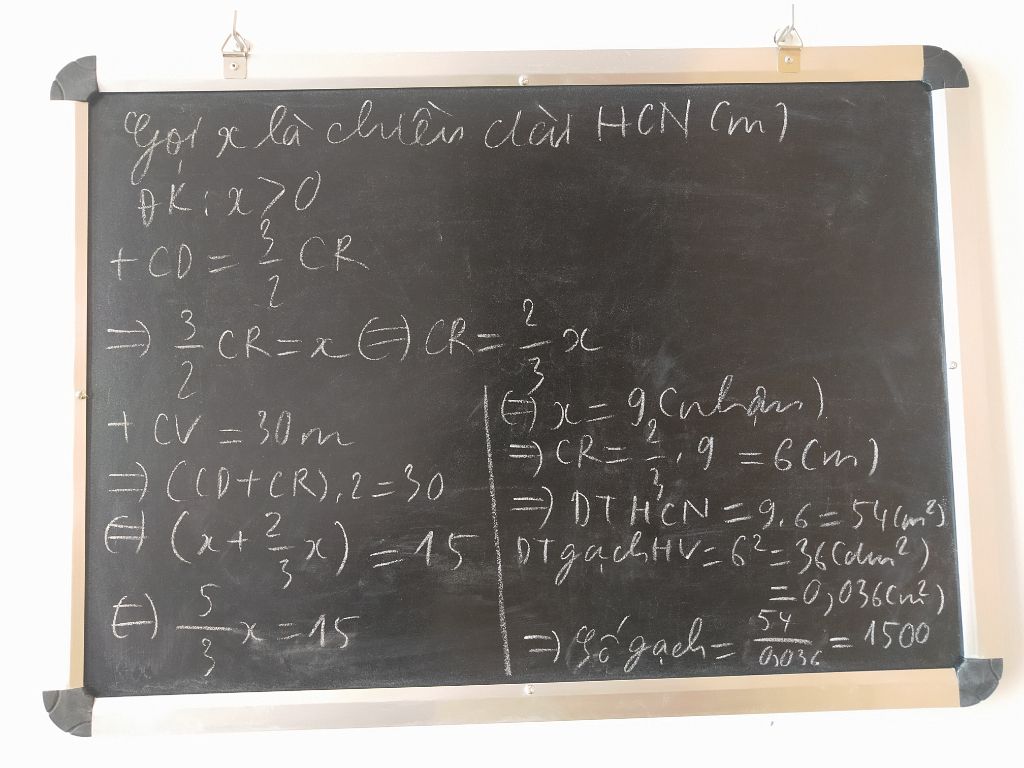 Gọi x là chiều dài HCN (m)
ĐK: x > 0
+ CD = 3/2 CR
=> 3/2 CR = x <=> CR = 2/3 x
+ CV = 30m
=> (CD + CR).2 = 30
<=> (x + 2/3 x) = 15
<=> 5/3 x = 15
<=> x = 9 (nhận)
=> CR = 2/3 . 9 = 6 (m)
=> DT HCN = 9.6 = 54 (m²)
DT gạch HV = 6² = 36 (dm²)
= 0,036 (m²)
=> Số gạch = 54/0,036 = 1500